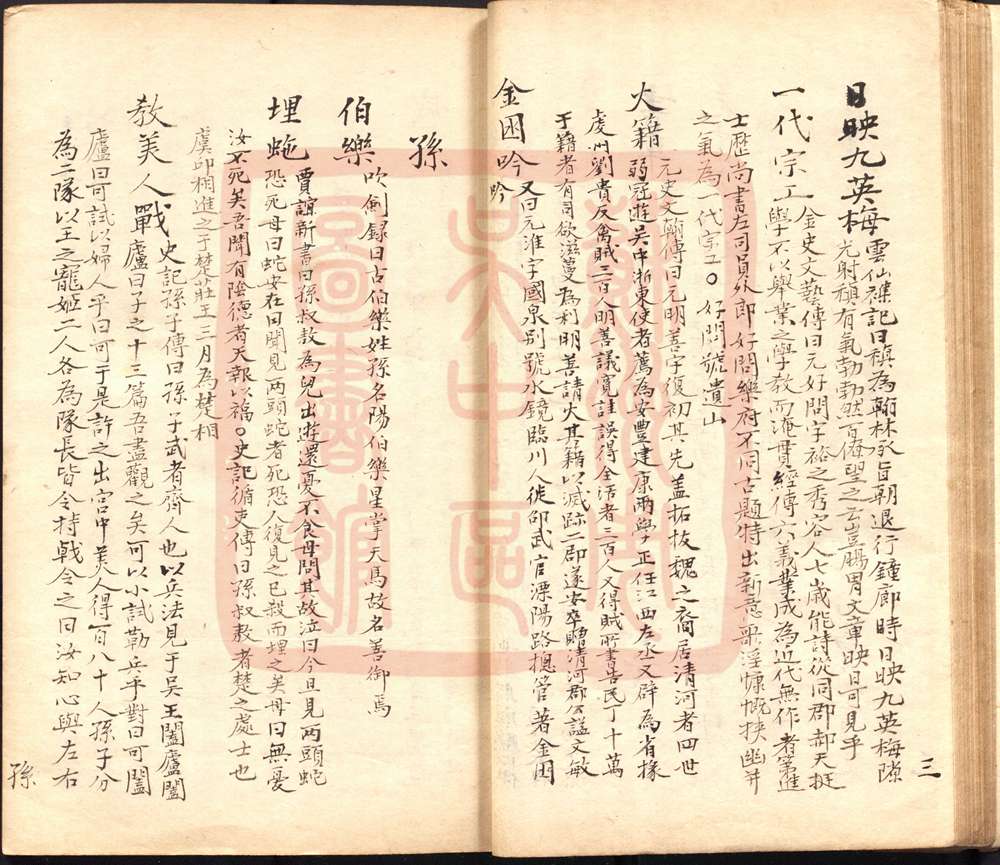 日映九英梅雲仙襍記曰稹為翰林承旨朝退行鐘廊時日映九英梅隙
光射稹有氣勃勃然百僚望之云豈腸胃文章映日可見乎
一代宗工金史文藝傳曰元好問字裕之秀容人七歲能詩從同郡郝天挺
學不以舉業之學教而淹貫經傳六義業成為近代無作者第進
士歷尚書左司員外郎好問樂府不同古題特出新意歌淫慷慨挾幽并
之氣為一代宗工○好問號遺山
火籍元史文翰傳曰元明善字復初其先盖拓拔魏之裔居清河者四世
弱冠遊吳中浙東使者薦為安豐建康兩學正任江西左丞又辟為省掾
虔州劉貴反禽賊三百人明善議寬詿誤得全活者三百人又得賊所書告民丁十萬
于籍者有司欲滋蔓為利明善請火其籍以滅跡二郡遂安卒贈清河郡公謚文敏
金困吟又曰元淮字國泉别號水鏡臨川人徙邵武官溧陽路總管著金困
吟
三
孫
伯樂吹劍録曰古伯樂姓孫名陽伯樂星掌天馬故名善御馬
賈誼新書曰孫叔敖為兒出遊還憂不食母問其故泣曰今旦見兩頭蛇
埋虵恐死母曰蛇安在曰聞見兩頭蛇者死恐人復見之已殺而埋之矣母曰無憂
汝不死矣吾聞有陰德者天報以福○史記循吏傳曰孫叔敖者楚之處士也
虞邱相進之于楚莊王三月為楚相
教美人戰史記孫子傳曰孫子武者齊人也以兵法見于吳王闔廬闔
廬曰子之十三篇吾盡觀之矣可以小試勒兵乎對曰可闔
廬曰可試以婦人乎曰可于是許之出宮中美人得百八十人孫子分
為二隊以王之寵姬二人各為隊長皆令持戟令之曰汝知心與左右
孫